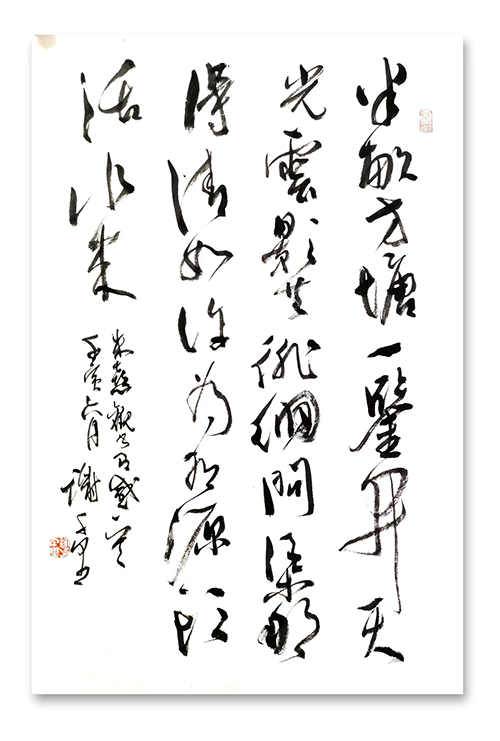 半畝方塘一鑒開天
光雲影共徘徊問渠那
得清如許為有源頭
活水來
朱熹觀書有感一首
壬寅六月謝